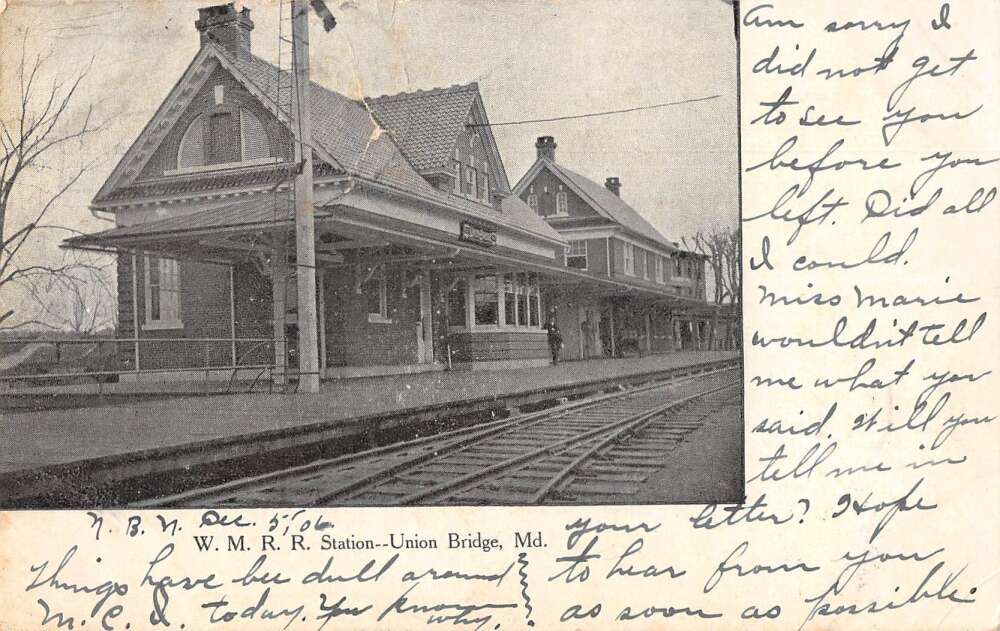 N. B. N. Dec. 5, 06.
W. M. R. R. Station--Union Bridge, Md.
Things have bee dull around
M. C. I. today. You know
why.
am sorry I
did not get
to see you
before you
left. Did all
I could.
Miss Marie
wouldn't tell
me what you
said. Will you
tell me in
your letter? Hope
to hear from you
as soon as possible.